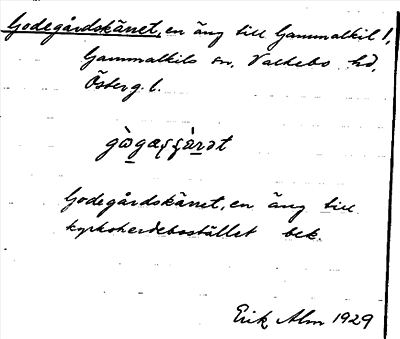 Godegårdskärret, en äng till Gammalkil 1,
Gammalkils sn, Valkebo hd,
Österg. l.
Godegårdskärret, en äng till
kyrkoherdebostället bek.
Erik Alm 1929